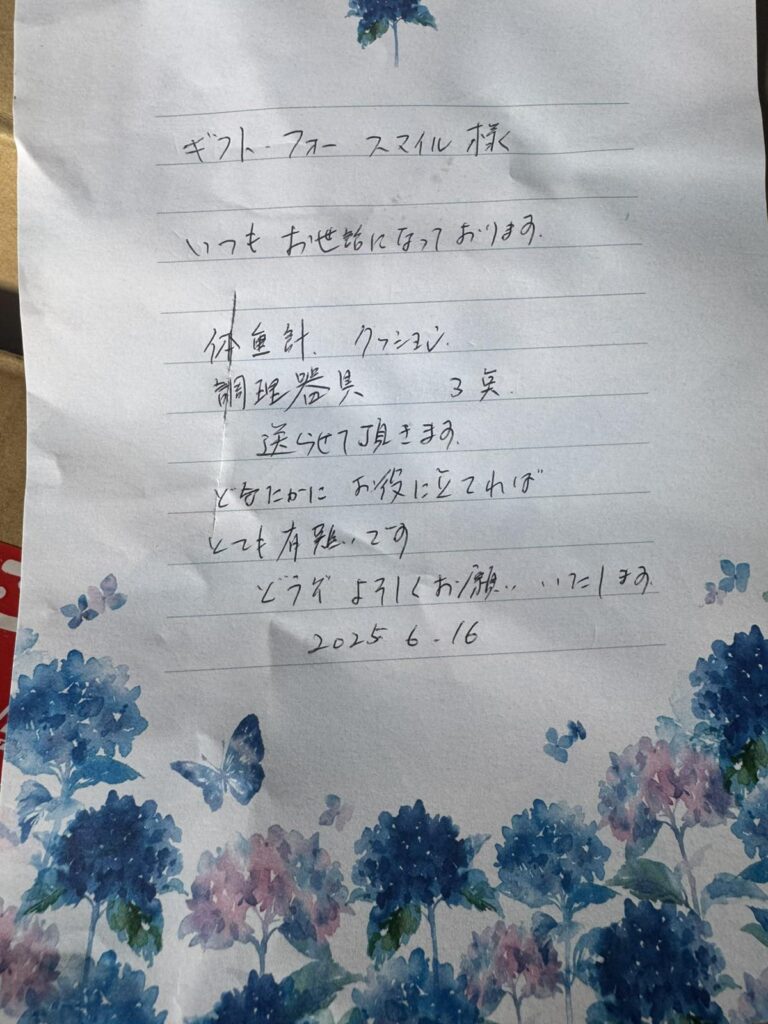 ギフト・フォー スマイル 様
いつも お世話になっております。
体重計、 クッション、
調理器具 3点、
送らせて頂きます。
どなたかに お役に立てれば
とても有難いです
どうぞ よろしくお願い いたします。
2025 6.16